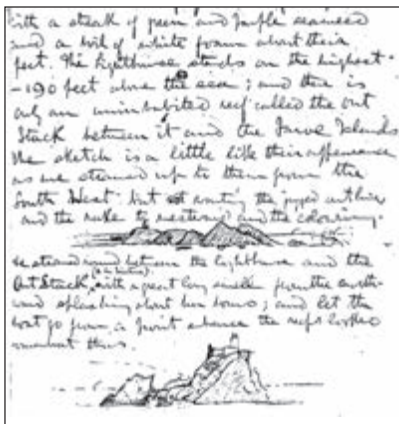 with a streak of green and purple seaweed
and a boil of white foam about their
feet. The lighthouse stands on the highest -
- 190 feet above the sea; and there is
only an uninhabited reef called the Out
Stack between it and the Faroe Islands
The sketch is a little like their appearance
as we steamed up to them from the
South West: but wanting the jagged outline
and the and the colouring.
We steamed round between the lighthouse and the
Out Stack, with a great long swell from the
and splashing about; and let the
boat go from a point whence the reefs looked
somewhat thus.